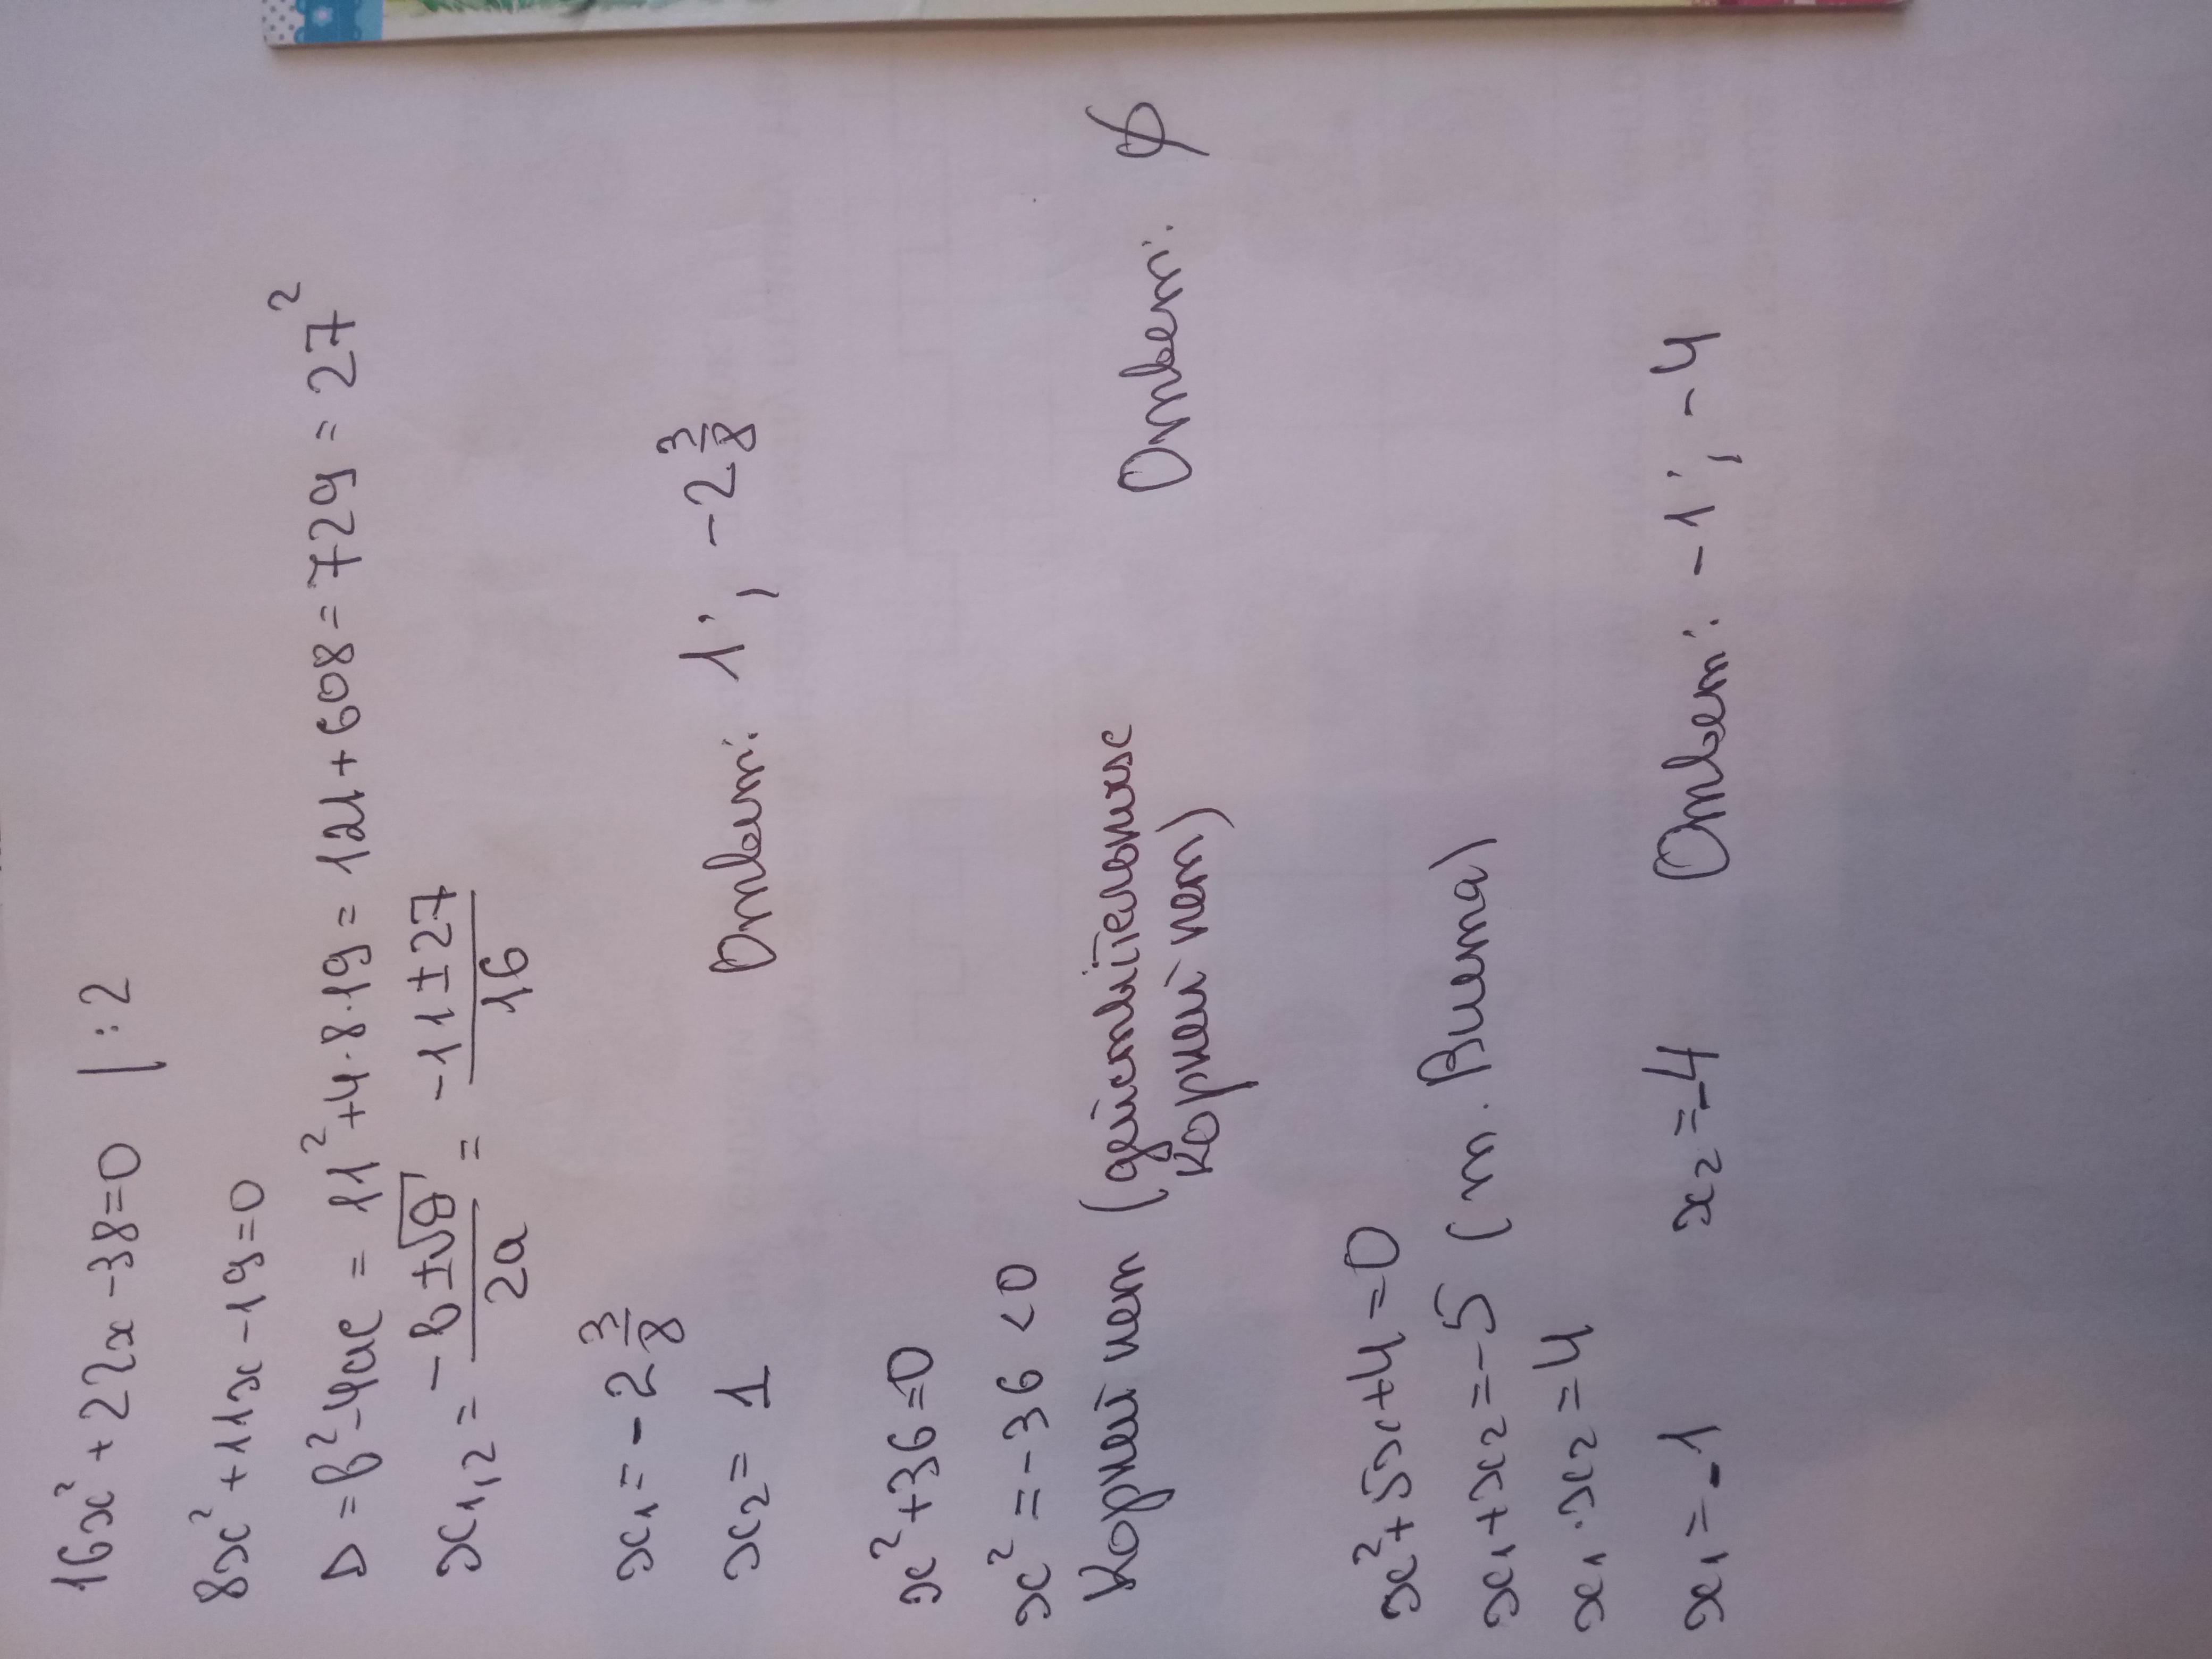 16x² + 22x - 38 = 0 | : 2
8x² + 11x - 19 = 0
D = b² - 4ac = 11² + 4·8·19 = 121 + 608 = 729 = 27²
x₁,₂ = (-b ± √D)/2a = (-11 ± 27)/16
x₁ = -2 3/8
x₂ = 1 Ответ: 1; -2 3/8
x² + 36 = 0
x² = -36 < 0
Корней нет (действительных
корней нет) Ответ: ∅
x² + 5x + 4 = 0
x₁ + x₂ = -5 (т. Виета)
x₁ · x₂ = 4
x₁ = -1 x₂ = -4 Ответ: -1; -4